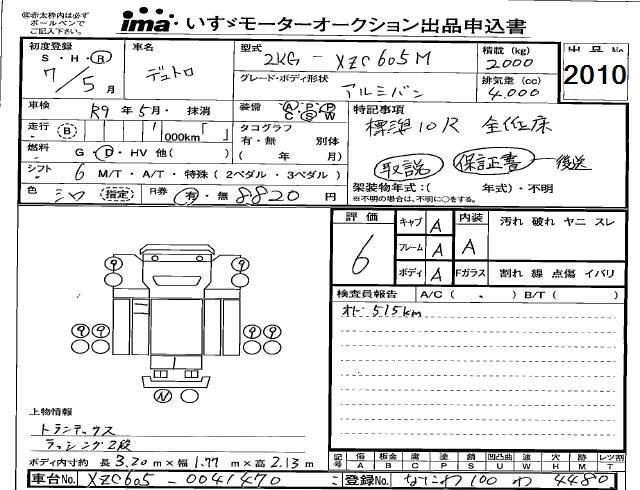 ㊟赤太枠内は必ず
ボールペンで
ご記入下さい。
ima いすゞモーターオークション出品申込書
初度登録
S・H・R
7/5月
車名
デュトロ
型式
2KG - XZC605M
積載 (kg)
2000
グレード・ボディ形状
アルミバン
排気量 (cc)
4.000
出品No
2010
車検
R9年5月・抹消
装備 A・P・P
C・S・W
走行 B 1 000km「 」
タコグラフ
有・無 別体
( 年 月)
燃料
G・D・HV 他( )
シフト
6 M/T・A/T・特殊 (2ペダル・3ペダル)
色
シロ 指定
R券
有・無 8820 円
特記事項
標準10尺 全低床
取説 保証書 後送
架装物年式:( 年式)・不明
※不明の場合は、不明に○をする。
評価
6
キャブ A
フレーム A
ボディ A
内装
A
Fガラス
汚れ 破れ ヤニ スレ
割れ 線 点傷 イバリ
検査員報告 A/C ( 、 ) B/T ( )
オド 515km
9 9
9 9 9 9
N
上物情報
トランテックス
ラッシング2段
ボディ内寸約 長3.20m×幅1.77m×高2.13m
記号 傷 A 板金 B 腐 C 塗 P 錆 S 凹凸曲 U 波 W 穴 H 跡 M レツ割 T
車台No. XZC605-0041470
登録No. なにわ 100 わ 4480